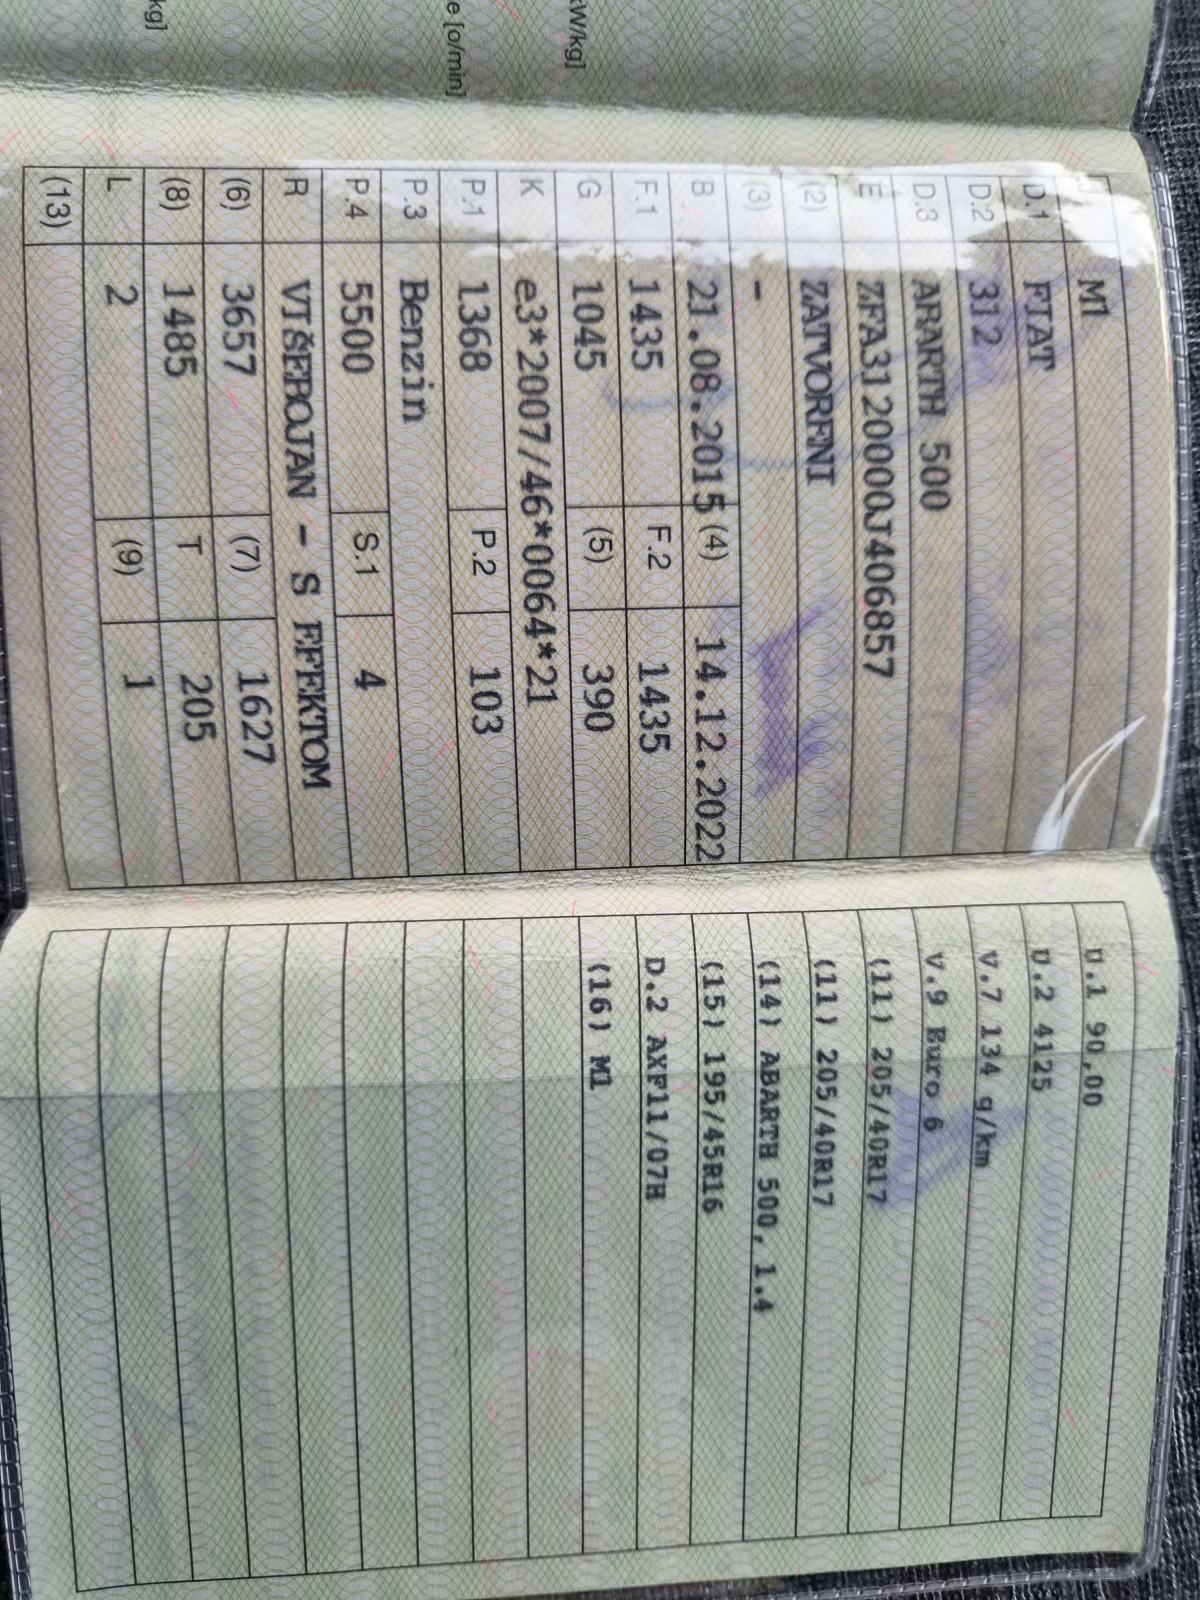 kW/kg]
e [o/min]
kg]
J M1
D.1 FIAT
D.2 312
D.3 ABARTH 500
E ZFA3120000J406857
(2) ZATVORENI
(3) -
B 21.08.2015 (4) 14.12.2022
F.1 1435 F.2 1435
G 1045 (5) 390
K e3*2007/46*0064*21
P.1 1368 P.2 103
P.3 Benzin
P.4 5500 S.1 4
R VIŠEBOJAN - S EFEKTOM
(6) 3657 (7) 1627
(8) 1485 T 205
L 2 (9) 1
(13)
U.1 90,00
U.2 4125
V.7 134 g/km
V.9 Euro 6
(11) 205/40R17
(11) 205/40R17
(14) ABARTH 500, 1.4
(15) 195/45R16
D.2 AXF11/07H
(16) M1